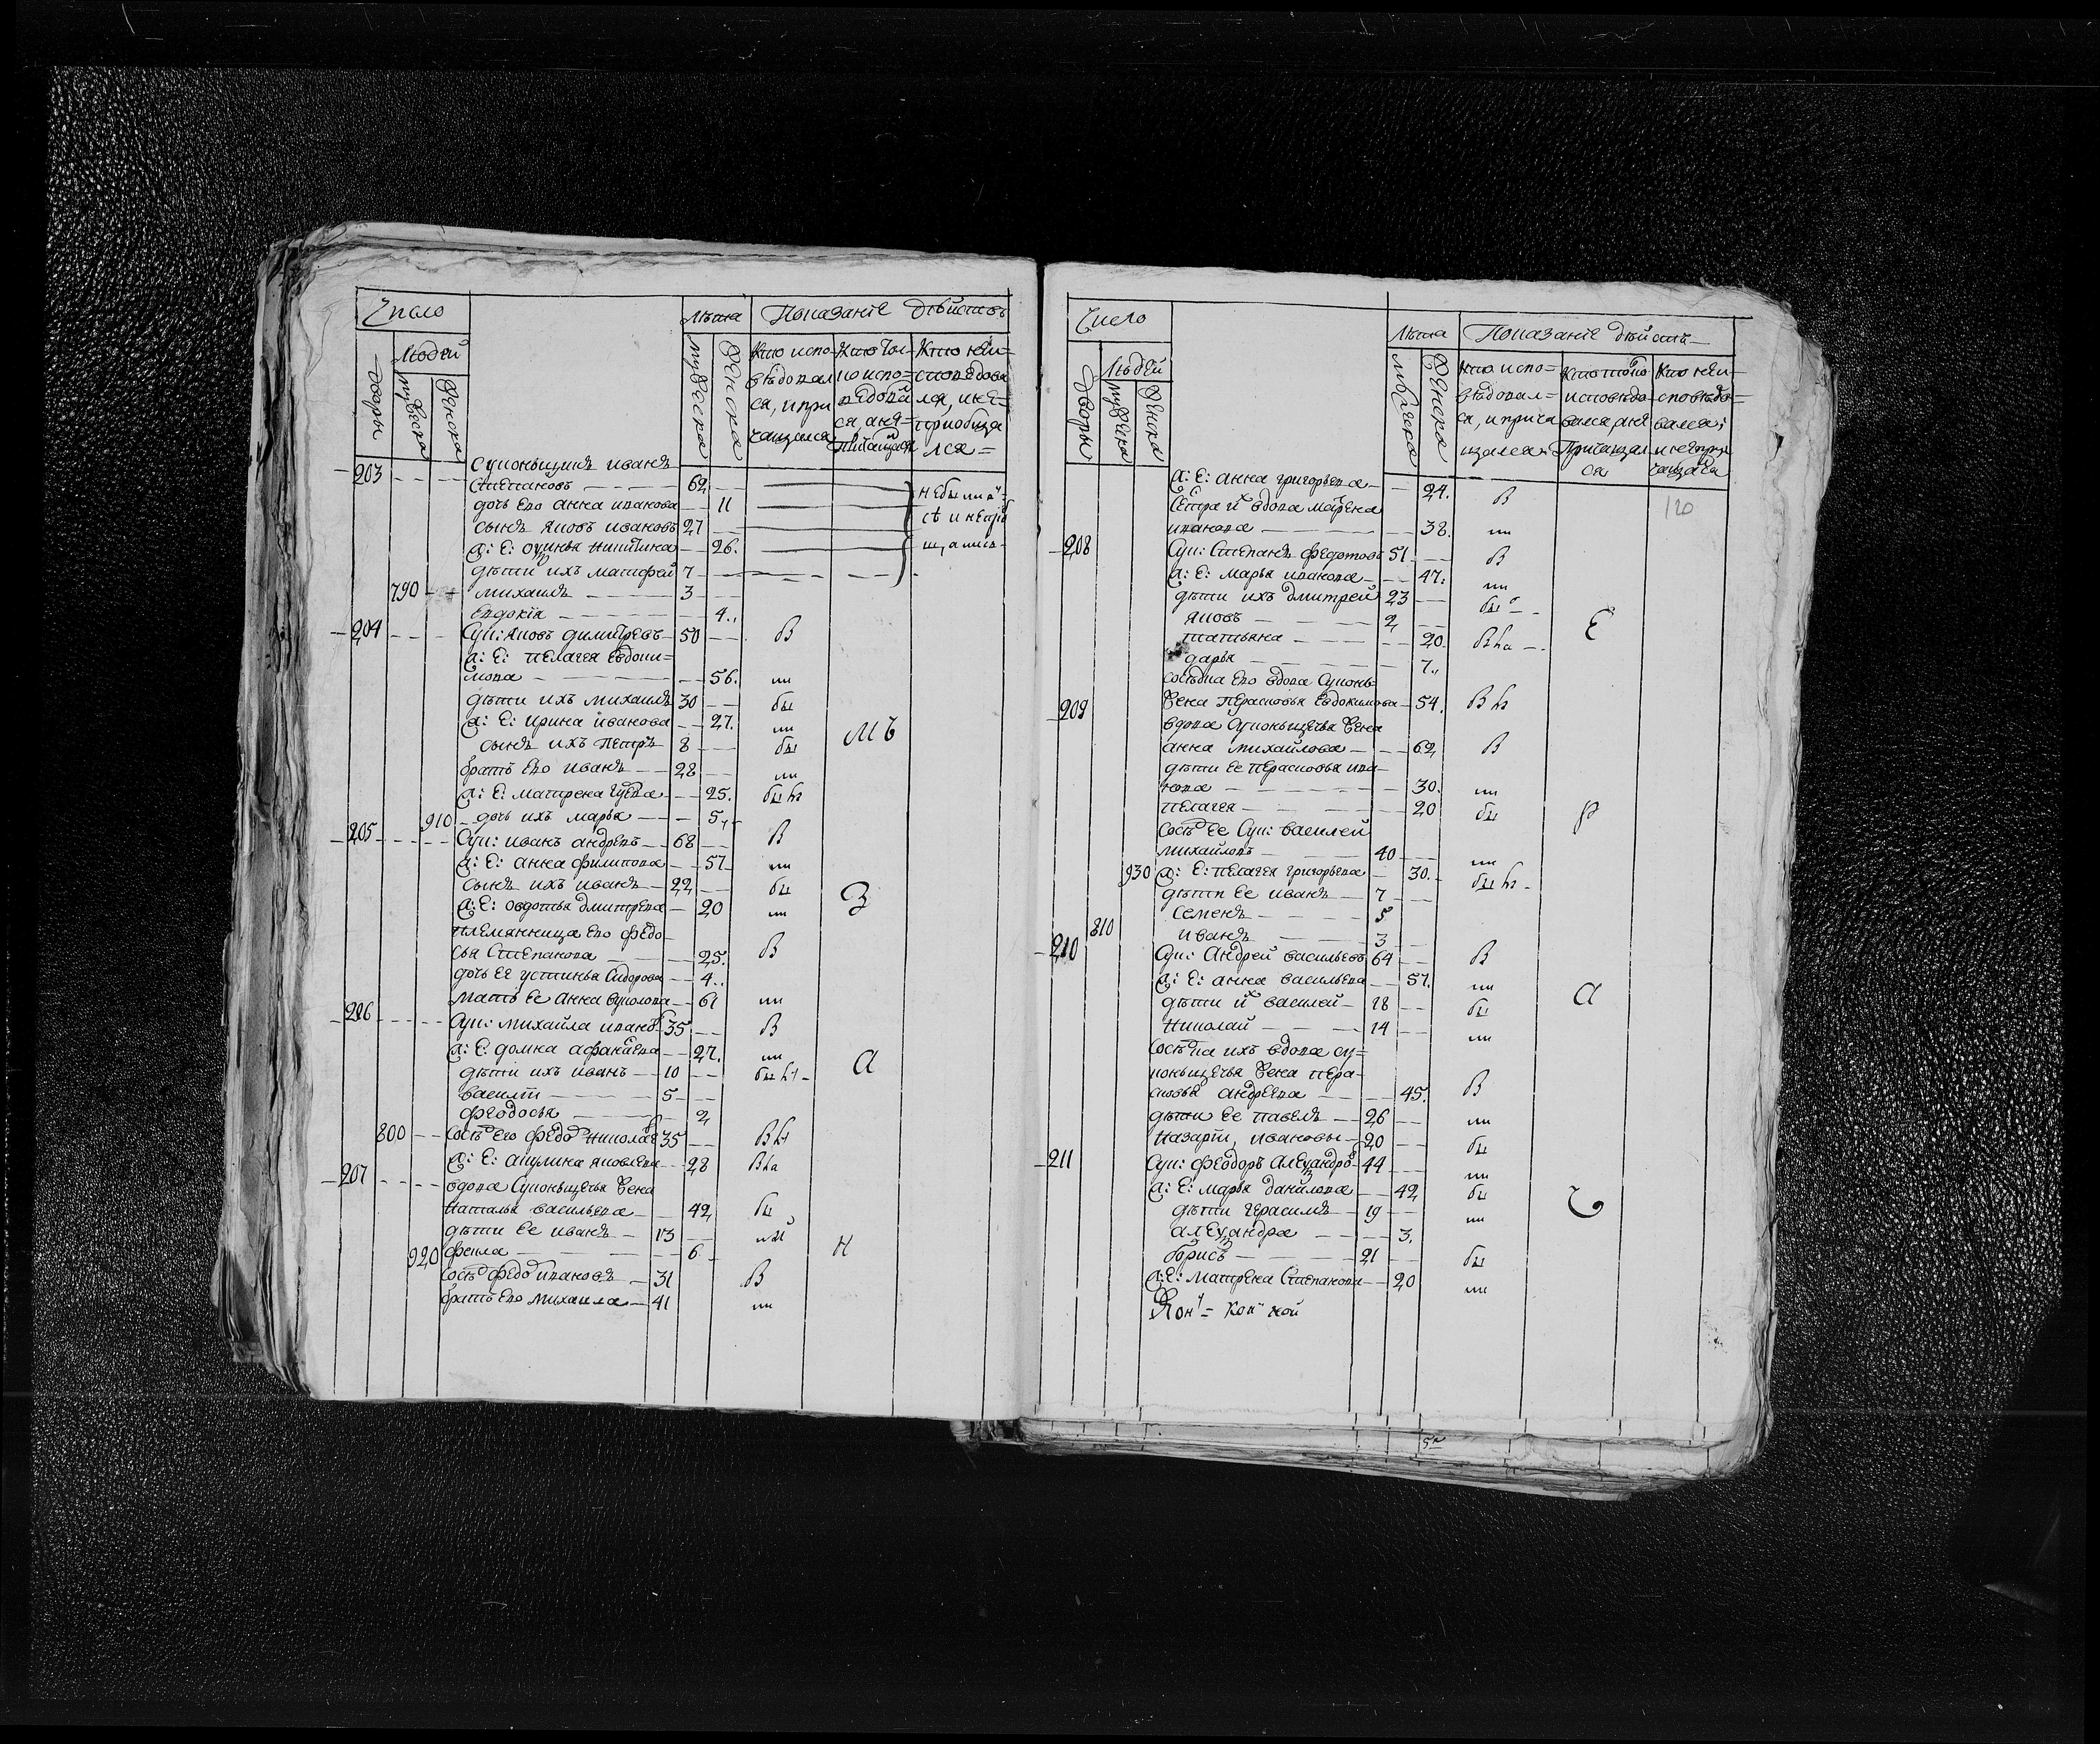 Число
Людей
Дворы
мужеска
женска
Лѣта
мужеска
женска
Показанїе дѣйствъ
Кто испо=
вѣдовал
ся, и при
чащался
Кто то
но испо=
ведова
ся, а не=
причащался
Кто неи=
споведова
лся, и не=
приобща
лся=
203 Суконьщикъ иванъ
Степановъ 62
дочь ево анна иванова 11 небыли
сынъ яковъ ивановъ 27
ж: Е: никитина 26.
дѣти ихъ матфей 7
790 михаилъ 3
Евдокїя 4
204 Сук: яковъ димитревъ 50 В
ж: Е: пелагея Евдоки=
мова 56. ни
дѣти ихъ михаилъ 30 бы
ж: Е: ирина иванова 27. ни
сынъ ихъ петръ 8 бы
братъ ево иванъ 28 ни
ж: Е: матрена 25. бы
910 дочь ихъ марья 5
205 Сук: иванъ андревъ 68 В
ж: Е: анна филипова 57 ни
сынъ ихъ иванъ 22 бы З
ж: Е: овдотья дмитрева 20 ни
племянница ево федо
сья Степанова 25. В
дочь Ее устинья Сидорова 4
мать Ее анна 61 ни
206 Сук: михайла ивановъ 35 В
ж: Е: домна афанасева 27. ни А
дѣти ихъ иванъ 10 бы
василїй 5
феодосья 2
800 сосѣд его федо николае 35 В
ж: Е: акулина яковлева 28
207 вдова Суконьщичья жена
наталья васильева 42 бы
дѣти Ее иванъ 13
920 фекла 6 н
сосѣд федо ивановъ 31 В
братъ ево михаила 41 ни
Число
Людей
Дворы
мужеска
женска
Лѣта
мужеска
женска
Показанїе дѣйств
кто испо=
вѣдовал=
ся, и прича
щался
кто токо
исповѣдо
вался, а не
Причащал
ся
Кто неи
сповѣдо=
вался,
и непри
чащался
120
ж: Е: анна григорьева 24. В
Сестра их вдова марѳена
иванова 38. ни
208 Сук: Степанъ федотовъ 51 В
ж: Е: марья иванова 47. ни
дѣти ихъ дмитрей 23 бы
яковъ 2 Е
татьяна 20.
дарья 7
сосѣдка Ево вдова Суконь
жена перасковья Евдокимова 54.
209 вдова Суконьщичья жена
анна михайлова 62 В
дѣти Ее перасковья ива
нова 30. ни
пелагея 20 бы Р
сосѣд Ее Сук: василей
михайловъ 40 ни
930 ж: Е: пелагея григорьева 30. бы
дѣти Ее иванъ 7
семенъ 5
810 иванъ 3
210 Сук: Андрей васильевъ 64 В
ж: Е: анна васильева 57. ни
дѣти их василей 18 бы А
николай 14 ни
сосѣдка ихъ вдова су=
коньщичья жена пера
сковья андреева 45. В
дѣти Ее павелъ 26 ни
назарїй, ивановы 20 бы
211 Сук: феодоръ Александро 44 ни
ж: Е: марья данилова 42 бы
дѣти герасимъ 19 ни
александра 3.
борисъ 21 бы
ж: Е: матрена Степанова 20 ни